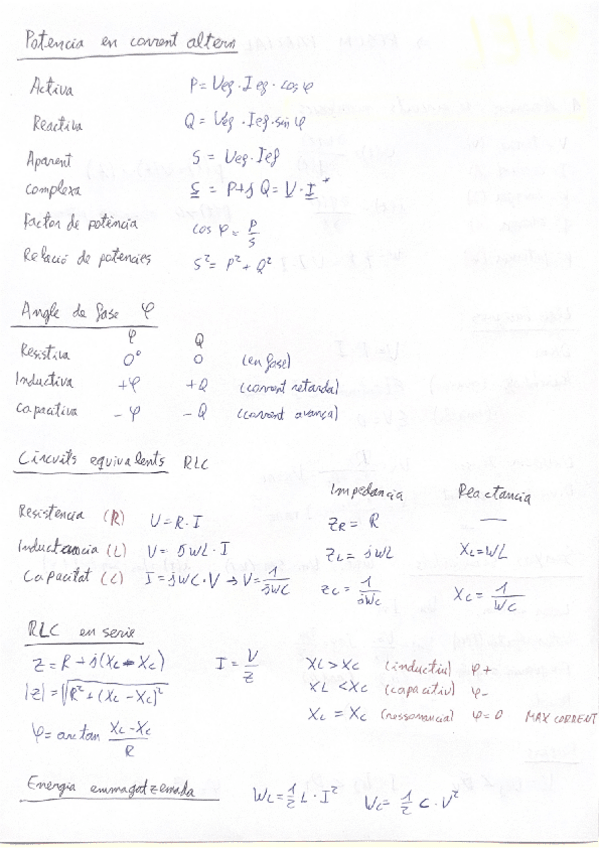 Potència en corrent altern
Activa P = Vef · Ief · cos φ
Reactiva Q = Vef · Ief · sin φ
Aparent S = Vef · Ief
Complexa S = P + j Q = V · I*
Factor de potència cos φ = P/S
Relació de potències S² = P² + Q²
Angle de fase φ
φ Q
Resistiva 0° 0 (en fase)
Inductiva +φ +Q (corrent retarda)
Capacitiva -φ -Q (corrent avança)
Circuits equivalents RLC
Impedància Reactància
Resistència (R) V = R · I ZR = R —
Inductancia (L) V = jωL · I ZL = jωL XL = ωL
Capacitat (C) I = jωC · V → V = 1/jωC ZC = 1/jωC XC = 1/ωC
RLC en serie
Z = R + j(XL - XC) I = V/Z XL > XC (inductiu) φ+
|Z| = √R² + (XL - XC)² XL < XC (capacitiu) φ-
φ = arctan XL - XC / R XL = XC (ressonancia) φ = 0 MAX CORRENT
Energia emmagatzemada WL = 1/2 L · I² WC = 1/2 C · V²